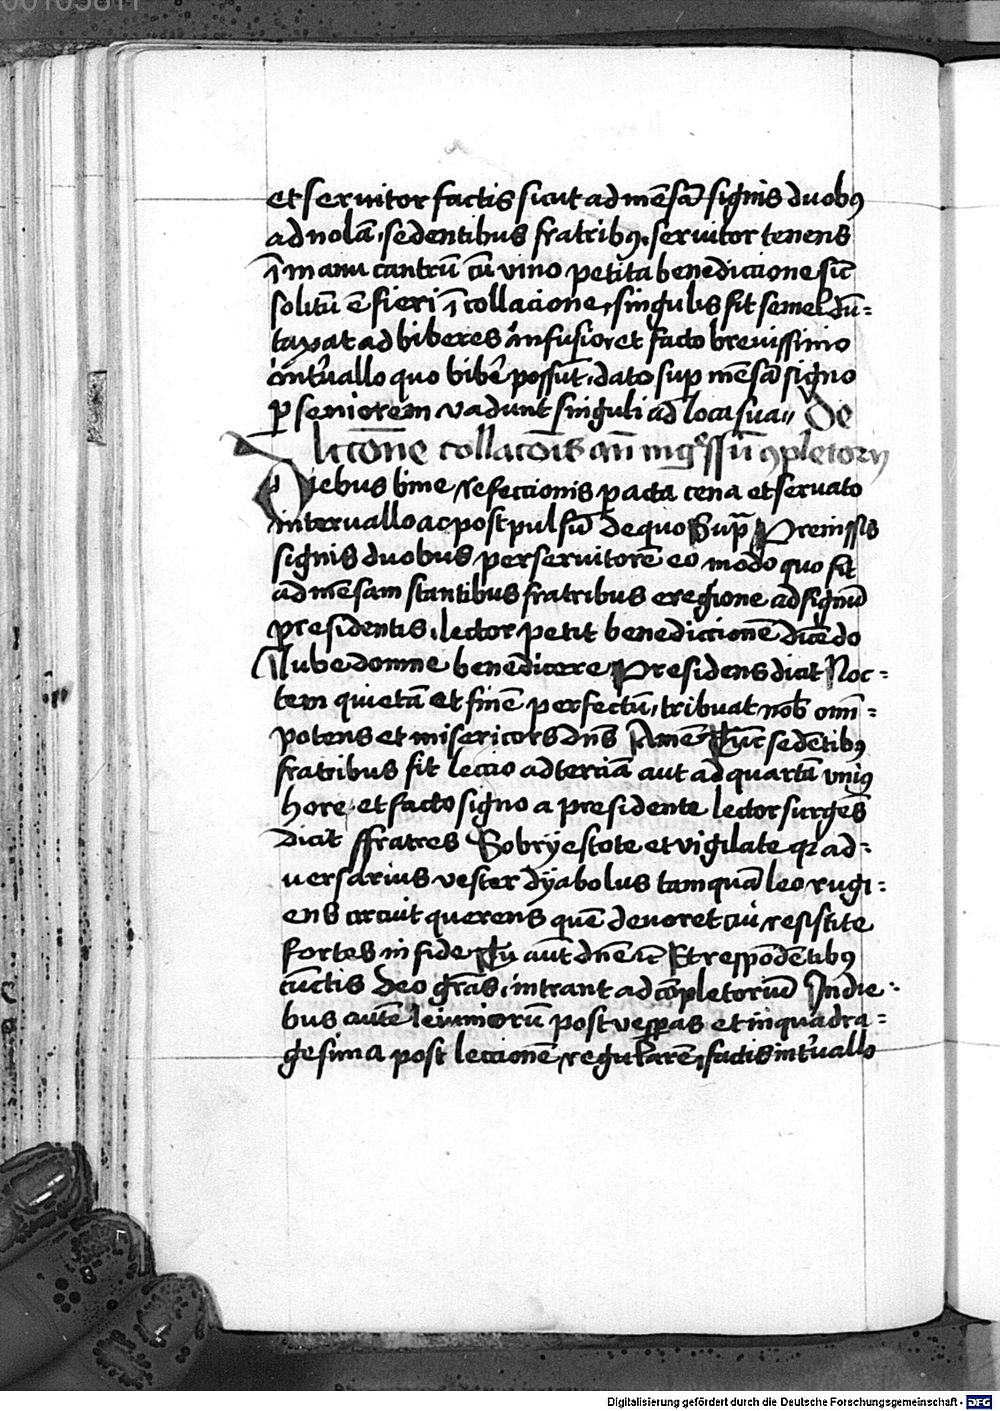 00103811
et seruitor factis sicut ad mēsā signis duobꝰ
ad nolā, sedentibus fratribꝰ, seruitor tenens
ī manu cantrū cū vino petita benediccione sic̄
solitū ē fieri ī collacione, singulis fit semel dū-
taxat ad biberes infusio, et facto breuissimo
intʼuallo quo bibʼe possūt, dato supʼ mēsā signo
ꝑ seniorem vadunt singuli ad loca sua // De
lectōne collacōis an̄ ingʼssū ꝯpletorij
Diebus bine refeccionis ꝑacta cena et seruato
interuallo ac post pulsū de quo Supᵃ Premissis
signis duobus per seruitorē eo modo quo fit
ad mēsam stantibus fratribus e regione ad signū
presidentis, lector petit benediccionē dicēdo
Iube domne benedicere Presidens dicit Noc-
tem quietā et finē perfectū, tribuat nob̄ omī-
potens et misericors dn̄s Amē Tūc sedētibꝰ
fratribus fit leccio ad terciā aut ad quartā vniꝰ
hore, et facto signo a presidente lector surgēs
dicit ffratres Sobrij estote et vigilate qꝛ ad-
uersarius vester dyabolus tamquā leo rugi-
ens circuit querens quē deuoret cui resistite
fortes in fide Tu aūt dn̄e rc̄ Et respōdētibꝰ
cūctis deo grās, intrant ad cōpletoriū In die-
bus autē ieiuniorū post vesꝑas et in quadra-
gesima post leccionē regularē, factis intʼuallo
Digitalisierung gefördert durch die Deutsche Forschungsgemeinschaft - DFG